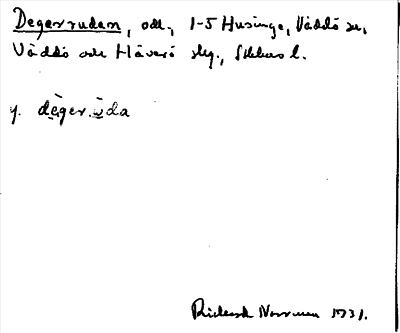 Degerrudan, odl., 1-5 Husinge, Väddö sn,
Väddö och Häverö slg., Sthlms l.
y. dēger ūda
Rickard Norrman 1931.